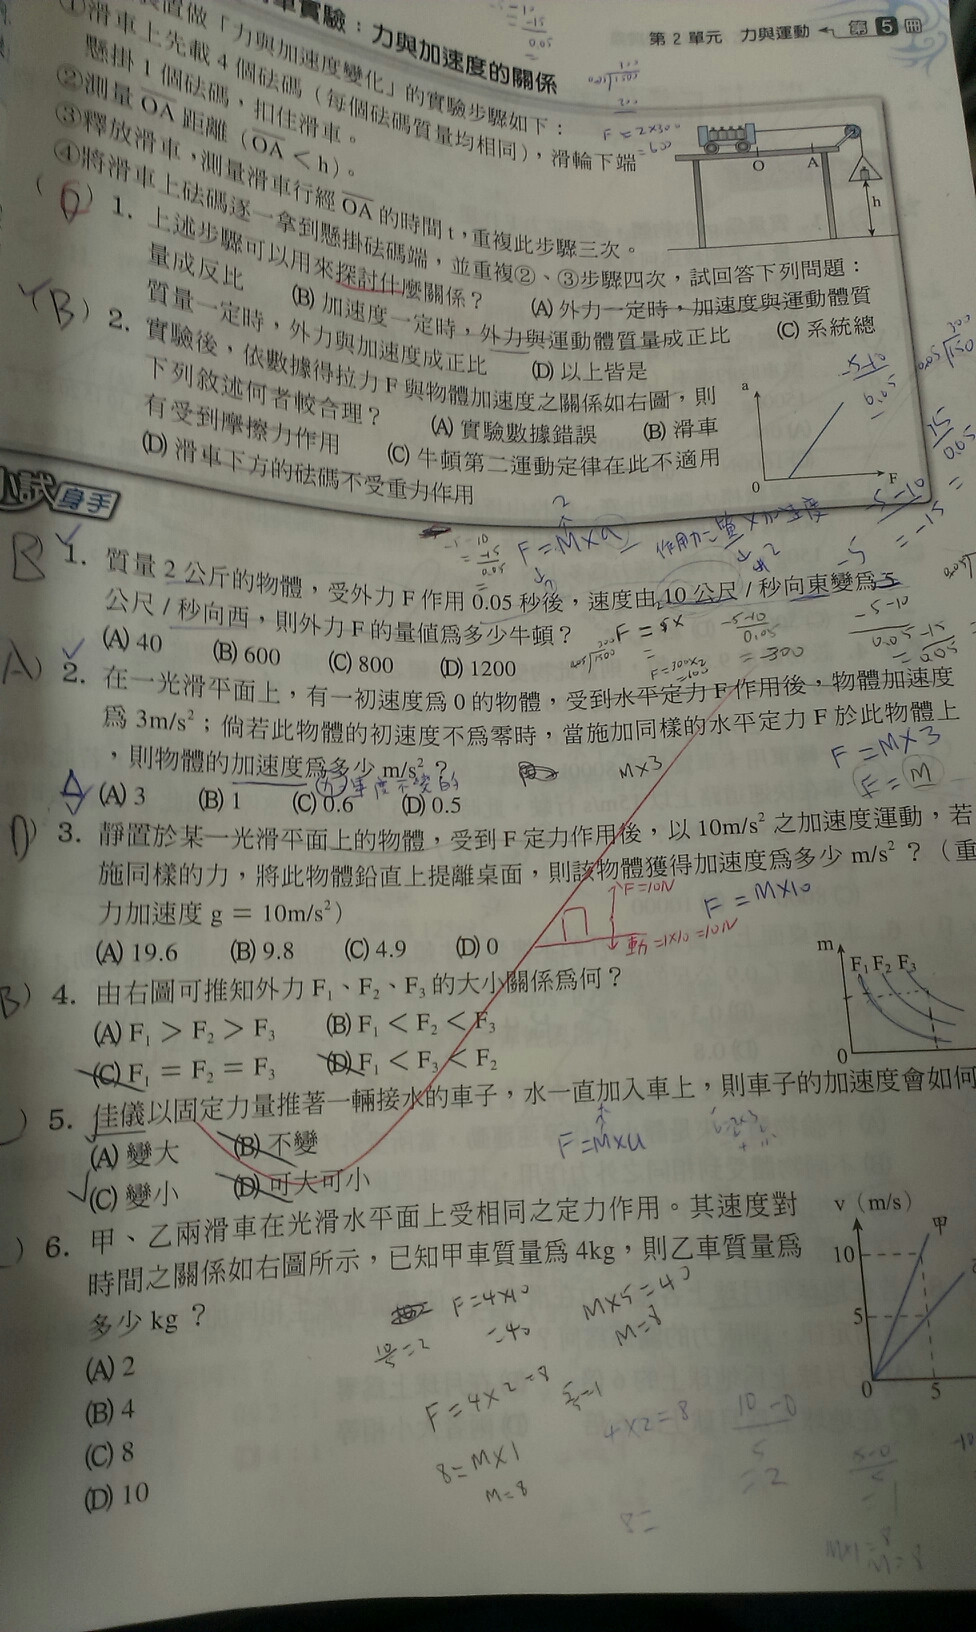 車實驗：力與加速度的關係
第2單元 力與運動 第5冊
裝置做「力與加速度變化」的實驗步驟如下：
①滑車上先載4個砝碼（每個砝碼質量均相同），滑輪下端
懸掛1個砝碼，扣住滑車。
②測量OA距離（OA<h）。
③釋放滑車，測量滑車行經OA的時間t，重複此步驟三次。
④將滑車上砝碼逐一拿到懸掛砝碼端，並重複②、③步驟四次，試回答下列問題：
O A h
1. 上述步驟可以用來探討什麼關係？ (A)外力一定時，加速度與運動體質
量成反比 (B)加速度一定時，外力與運動體質量成正比 (C)系統總
質量一定時，外力與加速度成正比 (D)以上皆是
(B) 2. 實驗後，依數據得拉力F與物體加速度之關係如右圖，則
下列敘述何者較合理？ (A)實驗數據錯誤 (B)滑車
有受到摩擦力作用 (C)牛頓第二運動定律在此不適用
(D)滑車下方的砝碼不受重力作用
a
0 F
F=2×300
=600
小試身手
F=M×a
B 1. 質量2公斤的物體，受外力F作用0.05秒後，速度由10公尺/秒向東變為5
公尺/秒向西，則外力F的量值為多少牛頓？
(A) 40 (B) 600 (C) 800 (D) 1200
F=300×2
=600
A) 2. 在一光滑平面上，有一初速度為0的物體，受到水平定力F作用後，物體加速度
為3m/s²；倘若此物體的初速度不為零時，當施加同樣的水平定力F於此物體上
，則物體的加速度為多少m/s²？
(A) 3 (B) 1 (C) 0.6 (D) 0.5
M×3
F=M×3
D) 3. 靜置於某一光滑平面上的物體，受到F定力作用後，以10m/s²之加速度運動，若
施同樣的力，將此物體鉛直上提離桌面，則該物體獲得加速度為多少m/s²？（重
力加速度g＝10m/s²）
(A) 19.6 (B) 9.8 (C) 4.9 (D) 0
F=10N
F=M×10
B) 4. 由右圖可推知外力F₁、F₂、F₃的大小關係為何？
(A) F₁＞F₂＞F₃ (B) F₁＜F₂＜F₃
(C) F₁＝F₂＝F₃ (D) F₁＜F₃＜F₂
m
F₁ F₂ F₃
0
) 5. 佳儀以固定力量推著一輛接水的車子，水一直加入車上，則車子的加速度會如何
(A)變大 (B)不變
(C)變小 (D)可大可小
F=M×a
) 6. 甲、乙兩滑車在光滑水平面上受相同之定力作用。其速度對
時間之關係如右圖所示，已知甲車質量為4kg，則乙車質量為
多少kg？
(A) 2
(B) 4
(C) 8
(D) 10
v (m/s)
甲
10
5
0 5
F=4×10
=40
M×5=40
M=8
F=4×2=8
8=M×1
M=8
4×2=8
10-0
5
=2